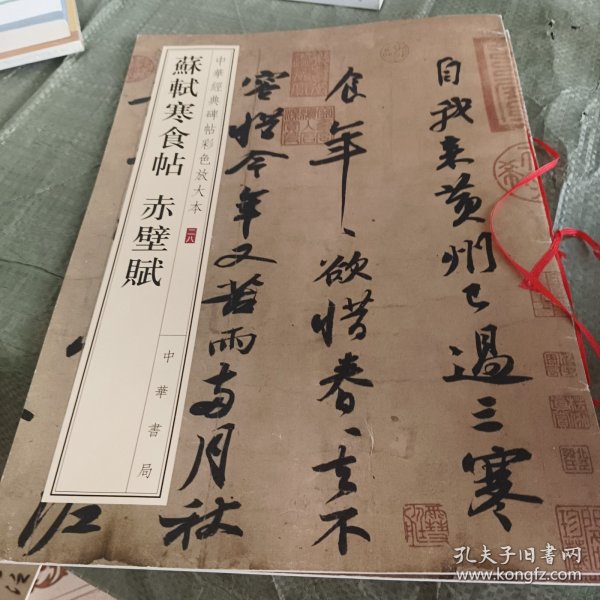 中華經典碑帖彩色放大本 二八
蘇軾寒食帖 赤壁賦
中華書局
自我來黃州已過三寒
食年〻欲惜春〻去不
容惜今年又苦雨兩月秋
孔夫子旧书网
www.kongfz.com